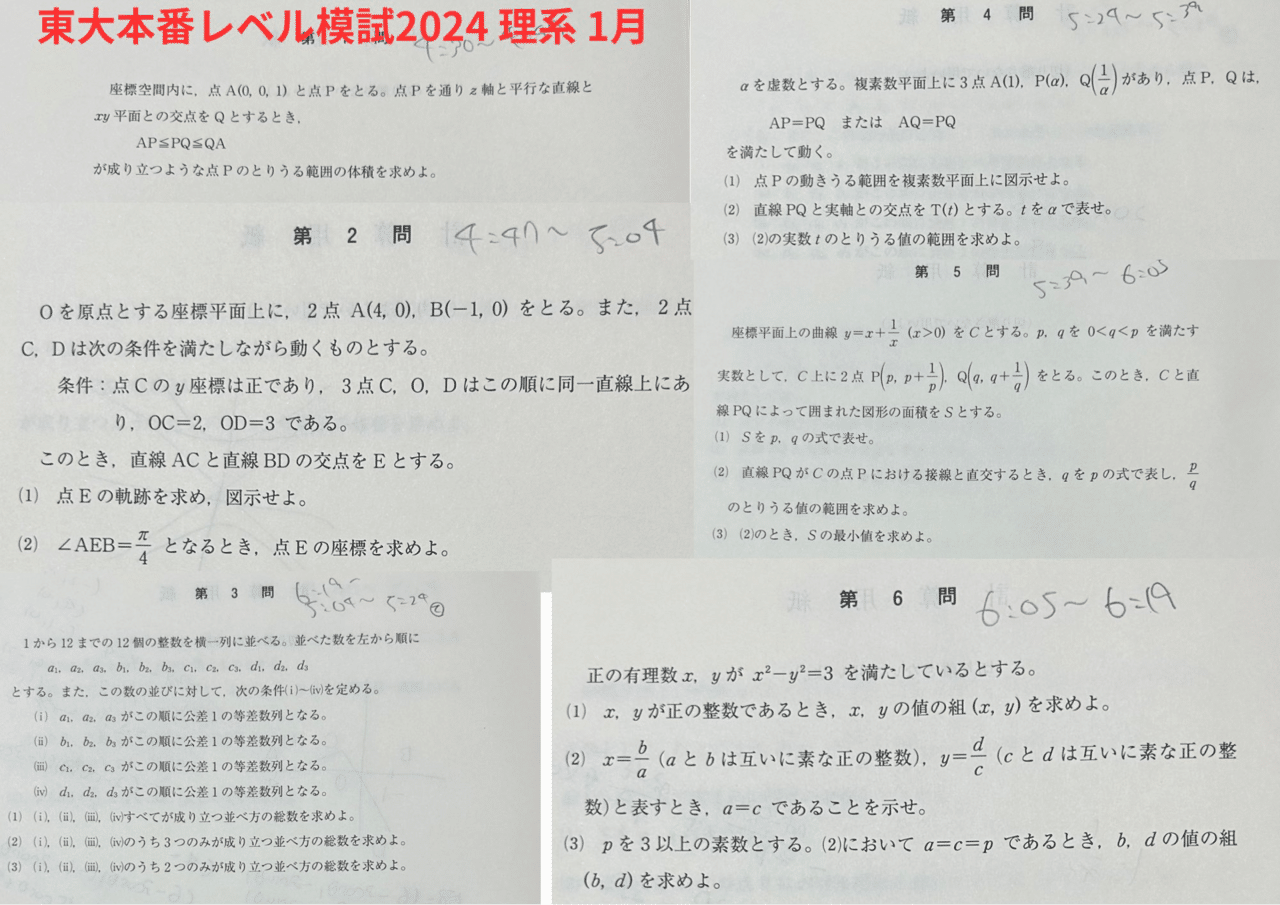 東大本番レベル模試2024 理系 1月
問
4:30~
座標空間内に，点 A(0, 0, 1) と点 P をとる。点 P を通り z 軸と平行な直線と
xy 平面との交点を Q とするとき，
AP≦PQ≦QA
が成り立つような点 P のとりうる範囲の体積を求めよ。
第 2 問
4:47~5:04
O を原点とする座標平面上に，2 点 A(4, 0)，B(−1, 0) をとる。また，2 点
C，D は次の条件を満たしながら動くものとする。
条件：点 C の y 座標は正であり，3 点 C，O，D はこの順に同一直線上にあ
り，OC=2，OD=3 である。
このとき，直線 AC と直線 BD の交点を E とする。
(1) 点 E の軌跡を求め，図示せよ。
(2) ∠AEB=π/4 となるとき，点 E の座標を求めよ。
第 3 問
6:19~
5:04~5:29
1 から 12 までの 12 個の整数を横一列に並べる。並べた数を左から順に
a₁, a₂, a₃, b₁, b₂, b₃, c₁, c₂, c₃, d₁, d₂, d₃
とする。また，この数の並びに対して，次の条件(ⅰ)~(ⅳ)を定める。
(ⅰ) a₁, a₂, a₃ がこの順に公差 1 の等差数列となる。
(ⅱ) b₁, b₂, b₃ がこの順に公差 1 の等差数列となる。
(ⅲ) c₁, c₂, c₃ がこの順に公差 1 の等差数列となる。
(ⅳ) d₁, d₂, d₃ がこの順に公差 1 の等差数列となる。
(1) (ⅰ), (ⅱ), (ⅲ), (ⅳ)すべてが成り立つ並べ方の総数を求めよ。
(2) (ⅰ), (ⅱ), (ⅲ), (ⅳ)のうち 3 つのみが成り立つ並べ方の総数を求めよ。
(3) (ⅰ), (ⅱ), (ⅲ), (ⅳ)のうち 2 つのみが成り立つ並べ方の総数を求めよ。
第 4 問
5:29~5:39
α を虚数とする。複素数平面上に 3 点 A(1)，P(α)，Q(1/α) があり，点 P，Q は，
AP=PQ または AQ=PQ
を満たして動く。
(1) 点 P の動きうる範囲を複素数平面上に図示せよ。
(2) 直線 PQ と実軸との交点を T(t) とする。t を α で表せ。
(3) (2)の実数 t のとりうる値の範囲を求めよ。
第 5 問
5:39~6:05
座標平面上の曲線 y=x+1/x (x>0) を C とする。p，q を 0<q<p を満たす
実数として，C 上に 2 点 P(p, p+1/p)，Q(q, q+1/q) をとる。このとき，C と直
線 PQ によって囲まれた図形の面積を S とする。
(1) S を p，q の式で表せ。
(2) 直線 PQ が C の点 P における接線と直交するとき，q を p の式で表し，p/q
のとりうる値の範囲を求めよ。
(3) (2)のとき，S の最小値を求めよ。
第 6 問
6:05~6:19
正の有理数 x，y が x²−y²=3 を満たしているとする。
(1) x，y が正の整数であるとき，x，y の値の組 (x, y) を求めよ。
(2) x=b/a (a と b は互いに素な正の整数)，y=d/c (c と d は互いに素な正の整
数) と表すとき，a=c であることを示せ。
(3) p を 3 以上の素数とする。(2)において a=c=p であるとき，b，d の値の組
(b, d) を求めよ。